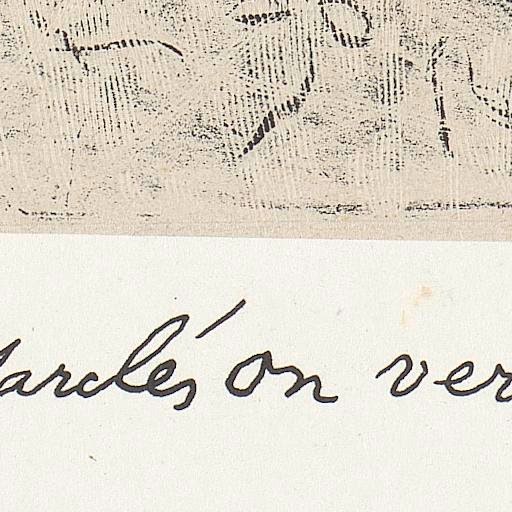 arclés on ver